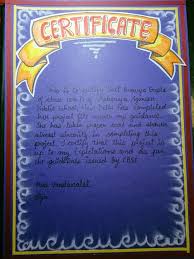 CERTIFICATE
This is to certify that Ananya Gupta
of class
Public School, New Delhi has completed
her project file under my guidance.
She has taken proper care and shown
utmost sincerity in completing this
project. I certify that this project is
up to my expectations and as per
the guidelines issued by CBSE